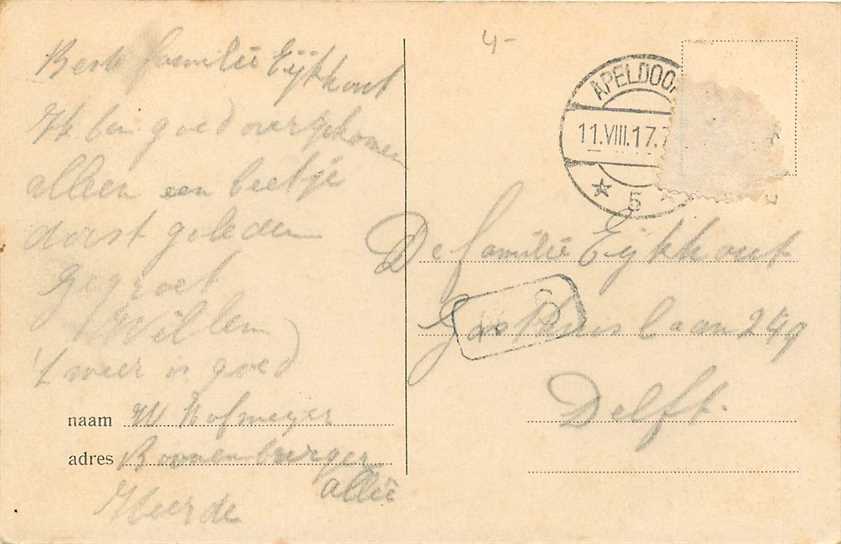 4-
Beste familie Eijkhout
Ik ben goed overgekomen
alleen een beetje
dorst geleden
Gegroet
Willem
't weer is goed
naam W Hofmeyer
adres
allee
Heerde
APELDOO
11.VIII.17.7
5
De familie Eijkhout
Gasthuislaan 249
Delft.